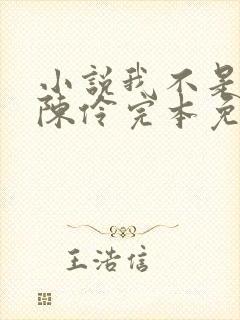 小説我不是
陳伶完本免
王浩信